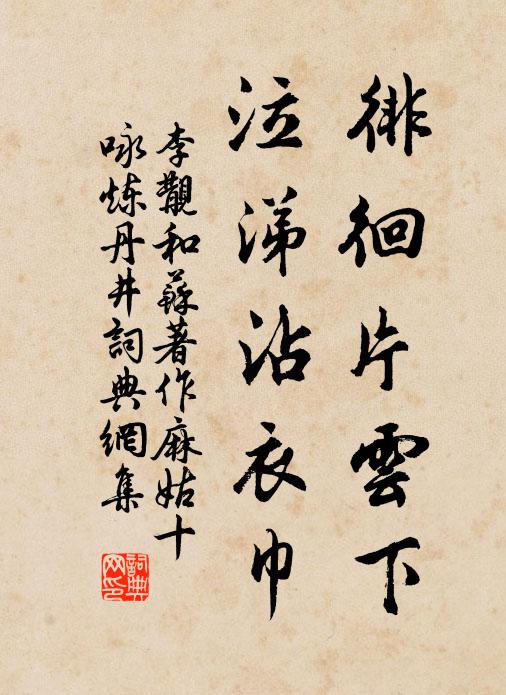 徘徊片雲下
泣涕沾衣巾
李觀和蘇著作麻姑十
咏炼丹井詞典網集
詞典网印